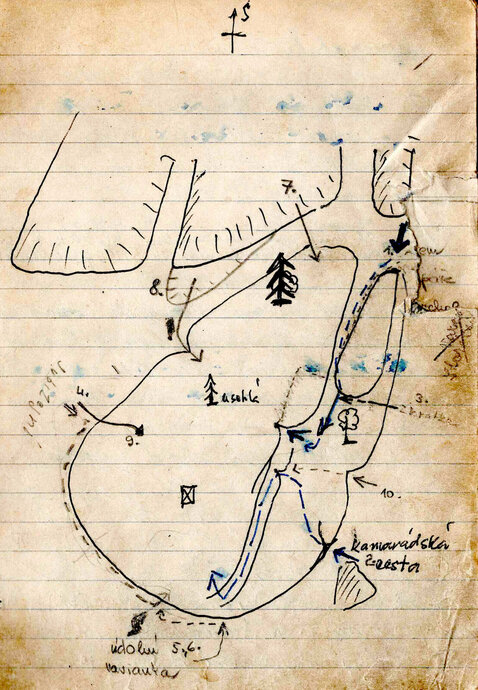 Š
7.
8.
4.
uschlá
3.
9.
10.
kamarádská
cesta
údolní 5,6.
varianta